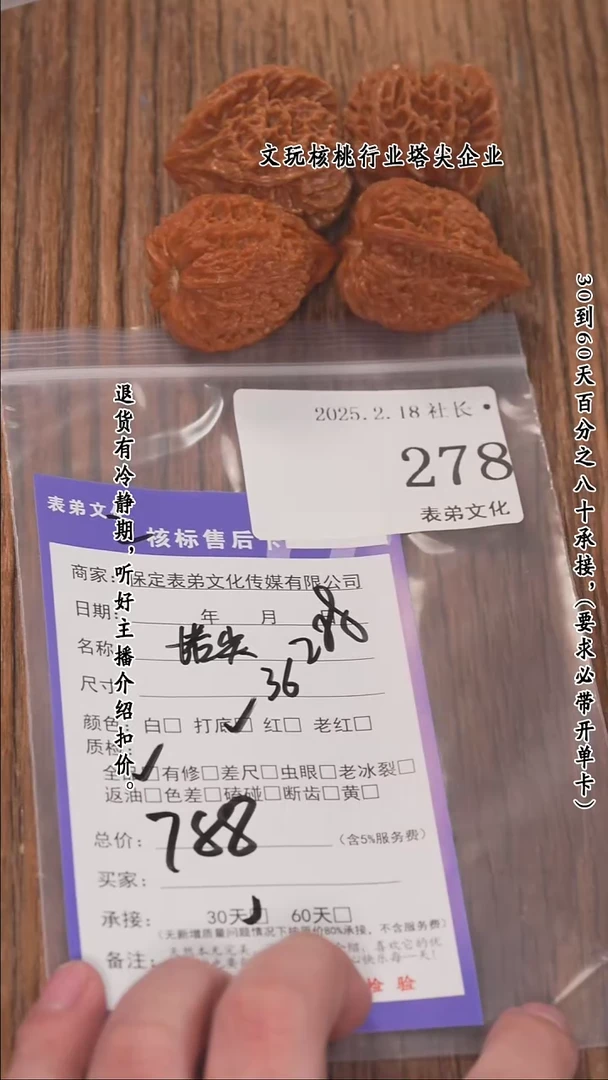 文玩核桃行业塔尖企业
30到60天百分之八十承接,(要求必带开单卡)
退货有冷静期,听好主播介绍扣价。
2025.2.18 社长
278
表弟文化
表弟文
核标售后卡
商家:保定表弟文化传媒有限公司
日期: 年 月
名称: 塔尖 288
尺寸 36
颜色:白□ 打底☑ 红□ 老红□
质检:
全品☑有修□差尺□虫眼□老冰裂□
返油□色差□磕碰□断齿□黄□
总价: 788 (含5%服务费)
买家:
承接: 30天☑ 60天□
(无新增质量问题情况下按原价80%承接,不含服务费)
备注: 天然本无完美 介绍,喜欢它的优
心快乐每一天!
检验